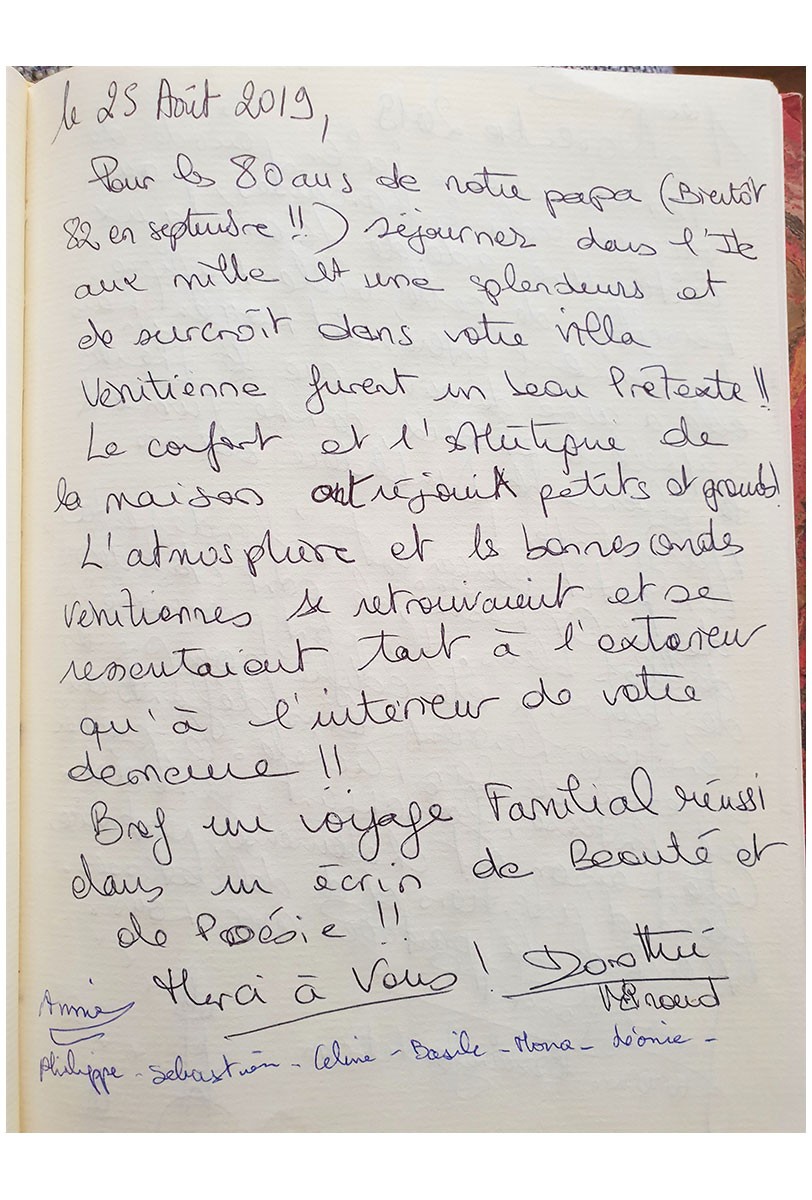 le 25 Août 2019,
Pour les 80 ans de notre papa (Bientôt
82 en septembre !!) séjourner dans l'Ile
aux mille et une splendeurs et
de surcroît dans votre villa
Vénitienne furent un beau Prétexte !!
Le confort et l'esthétique de
la maison ont réjouit petits et grands!
L'atmosphère et les bonnes ondes
vénitiennes se retrouvaient et se
ressentaient tant à l'exterieur
qu'à l'interieur de votre
demeure !!
Bref un voyage Familial réussi
dans un écrin de Beauté et
de Poésie !!
Merci à Vous ! Dorothée
Annie
Philippe - Sébastien - Celine - Basile - Mona - Léonie -